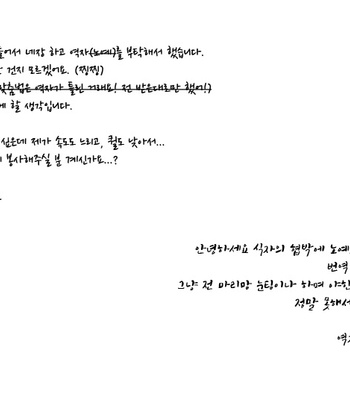 들어서 네장 하고 역자(노예)를 부탁해서 했습니다.
건지 모르겠어요. (찡찡)
맞춤법은 역자가 틀린 거래요! 전 받은대로만 했어!)
게 할 생각입니다.
싶은데 제가 속도도 느리고, 퀄도 낮아서...
봉사해주실 분 계신가요...?
안녕하세요 식자의 협박에 노예
번역
그냥 전 마리망 눈팅이나 하며 야한
정말 못해서
역자